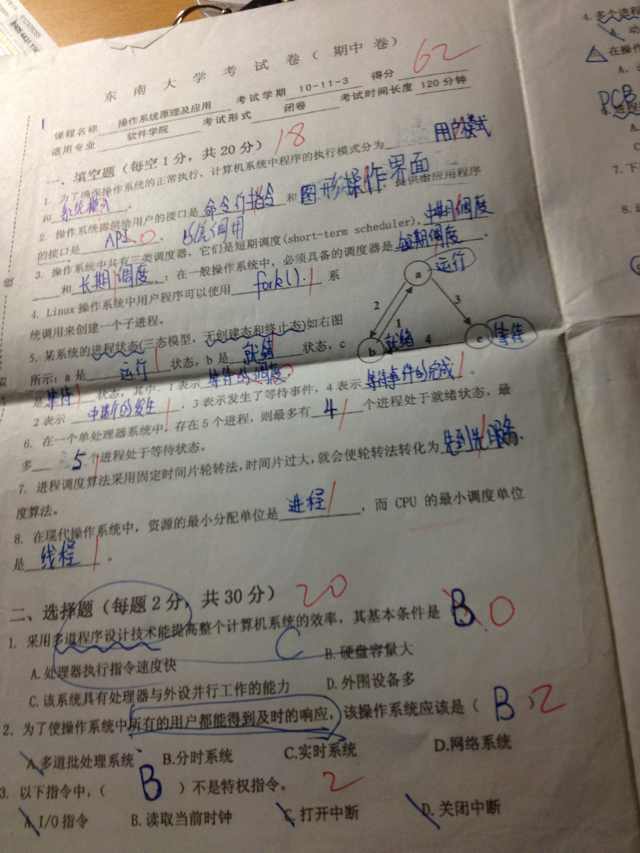 东南大学考试卷（期中卷）
课程名称 操作系统原理及应用 考试学期 10-11-3 得分 62
适用专业 软件学院 考试形式 闭卷 考试时间长度 120分钟
一、填空题（每空1分，共20分） 18
1. 为了确保操作系统的正常执行，计算机系统中程序的执行模式分为 用户模式
和 系统模式 。
2. 操作系统提供给用户的接口是 命令行指令 和 图形操作界面 ，提供给应用程序
的接口是 API 0 、系统调用
3. 操作系统中共有三类调度器，它们是短期调度(short-term scheduler)，中期调度
和 长期调度 ；在一般操作系统中，必须具备的调度器是 短期调度 。
4. Linux 操作系统中用户程序可以使用 fork() 系
统调用来创建一个子进程。
5. 某系统的进程状态(三态模型，无创建态和终止态)如右图
所示：a 是 运行 状态，b 是 就绪 状态，c
是 等待 状态，其中，1 表示 等待的调度
2 表示 中断的发生 ，3 表示发生了等待事件，4 表示 等待事件的完成 。
a 运行
2
1
3
b 就绪
4
c 等待
6. 在一个单处理器系统中，存在 5 个进程，则最多有 4 个进程处于就绪状态，最
多 5 个进程处于等待状态。
7. 进程调度算法采用固定时间片轮转法，时间片过大，就会使轮转法转化为 先到先服务
度算法。
8. 在现代操作系统中，资源的最小分配单位是 进程 ，而 CPU 的最小调度单位
是 线程 。
二、选择题（每题2分，共30分） 20
1. 采用多道程序设计技术能提高整个计算机系统的效率，其基本条件是 B 0
C
A. 处理器执行指令速度快 B. 硬盘容量大
C. 该系统具有处理器与外设并行工作的能力 D. 外围设备多
2. 为了使操作系统中所有的用户都能得到及时的响应，该操作系统应该是（ B ） 2
A. 多道批处理系统 B.分时系统 C.实时系统 D.网络系统
3. 以下指令中，（ B ）不是特权指令。 2
A. I/O 指令 B. 读取当前时钟 C. 打开中断 D. 关闭中断
4. 多个进程
A. 动
在操
A.
PCB
A
C
7. 下
8.